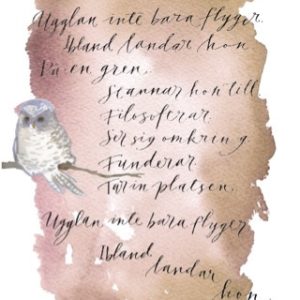 Ugglan inte bara flyger.
Ibland landar hon
På en gren.
Stannar hon till
Filosoferar.
Ser sig omkring.
Funderar.
Tar in platsen.
Ugglan inte bara flyger
Ibland
landar
hon